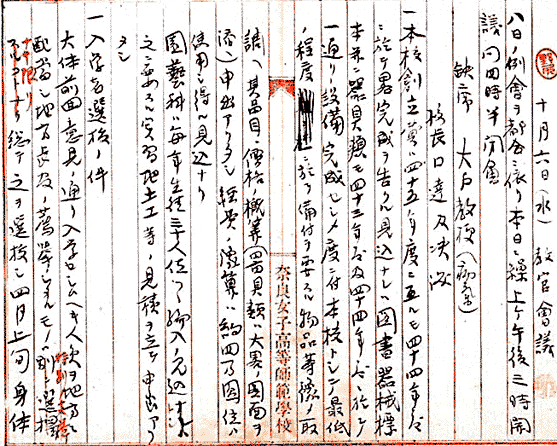 十月六日(水)教官會議
八日ノ例會ヲ都合ニ依リ本日ニ繰上ケ午後三時開
議同四時半閉會
缺席 大戸教授(病気)
校長口達及決議
一本校創立費ハ四十五年度ニ亙ルモ四十四年度ニ
於テ畧完成ヲ告クル見込ナレハ図書器械標
本並ニ器具類モ四十三年度及四十四年度ニ於テ
一通リ設備完成セシメ度ニ付本校トシテノ最低
ノ程度ニ於テ備付ヲ要スル物品等ヲ取
調ヘ其品目價格ノ概算(器具類ハ大畧ノ図面ヲ
添)申出アリタシ経費ノ豫算ハ約四万圓位ハ
使用シ得ル見込ナリ
園藝科ハ毎年生徒三十人位ツヽ編入ノ見込
之ニ要スル実習地土工等ノ見積ヲ立テ申出アリ
タシ
一入学者選抜ノ件
大体前回意見ノ通リ入学セシムヘキ人数ヲ地方ニ
配當シ地方長官ノ薦挙シタルモノハ別ニ選擇
総テ之ヲ選抜シ四月上旬身体
奈良女子高等師範學校